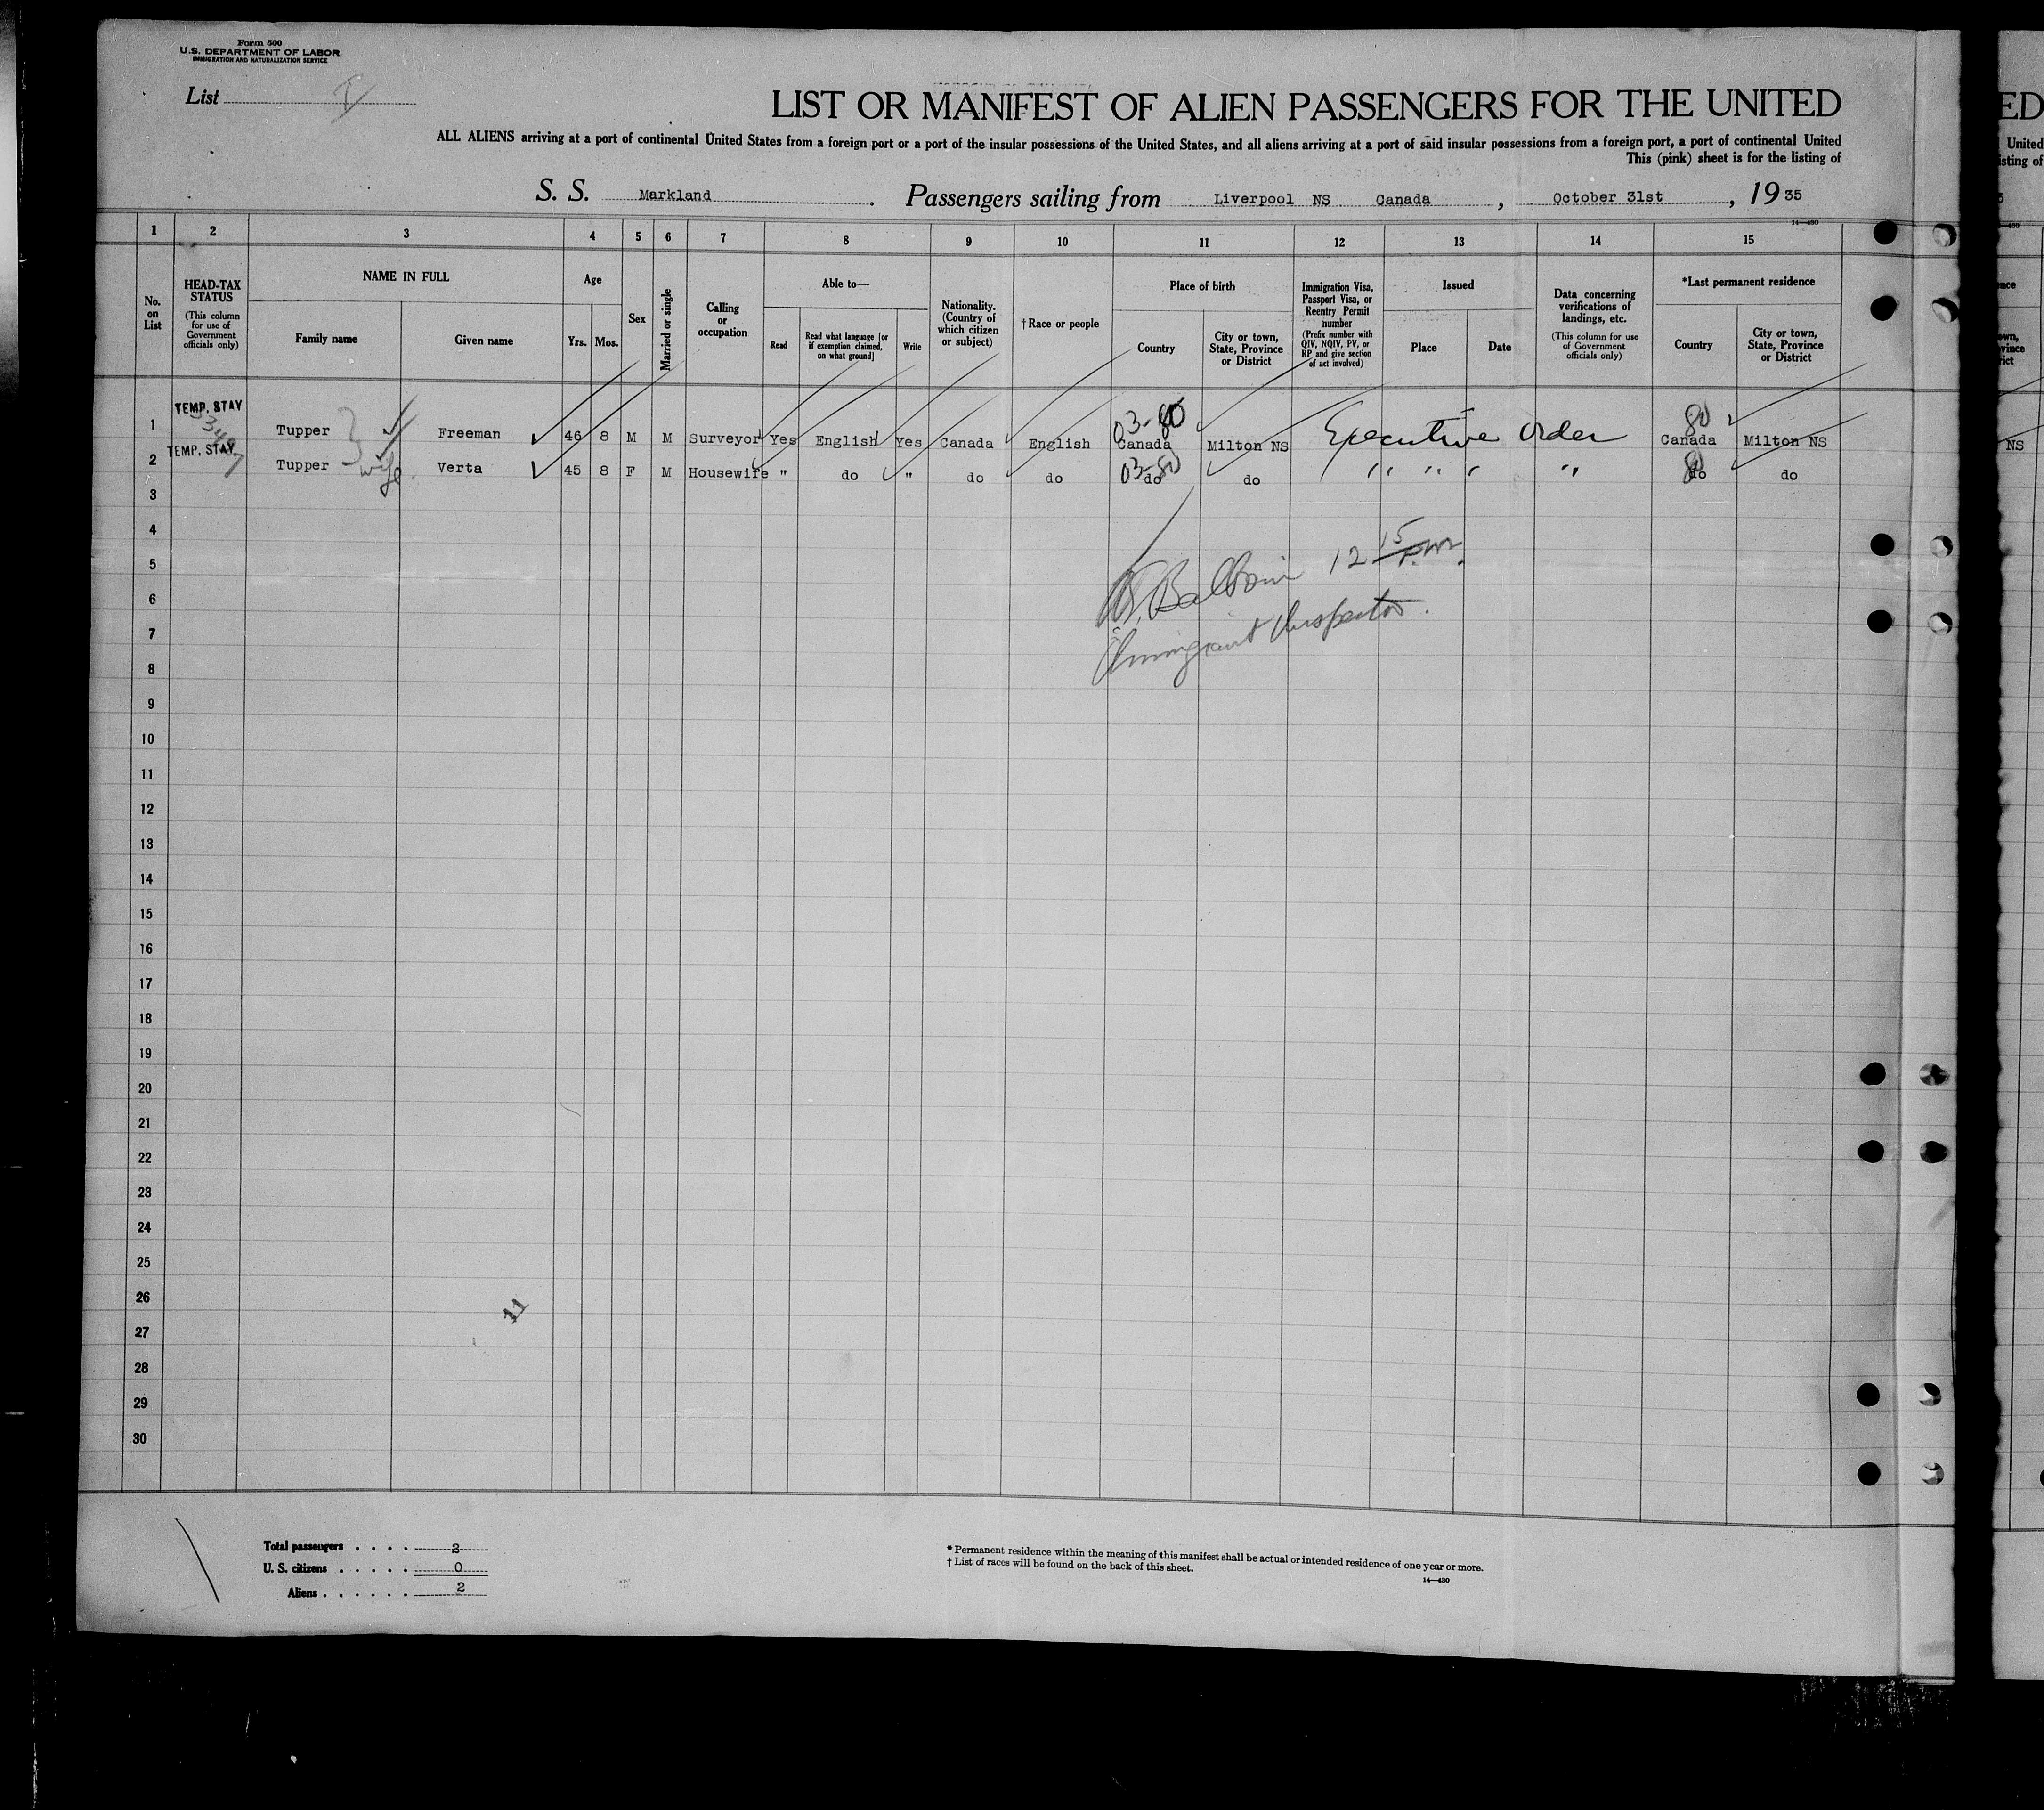 Form 500
U.S. DEPARTMENT OF LABOR
IMMIGRATION AND NATURALIZATION SERVICE
List I
LIST OR MANIFEST OF ALIEN PASSENGERS FOR THE UNITED
ALL ALIENS arriving at a port of continental United States from a foreign port or a port of the insular possessions of the United States, and all aliens arriving at a port of said insular possessions from a foreign port, a port of continental United
This (pink) sheet is for the listing of
S. S. Markland. Passengers sailing from Liverpool NS Canada, October 31st, 1935
14—430
1 2 3 4 5 6 7 8 9 10 11 12 13 14 15
No. on List
HEAD-TAX STATUS
(This column for use of Government officials only)
NAME IN FULL
Family name
Given name
Age
Yrs. Mos.
Sex
Married or single
Calling or occupation
Able to—
Read
Read what language [or if exemption claimed, on what ground]
Write
Nationality. (Country of which citizen or subject)
† Race or people
Place of birth
Country
City or town, State, Province or District
Immigration Visa, Passport Visa, or Reentry Permit number
(Prefix number with QIV, NQIV, PV, or RP and give section of act involved)
Issued
Place
Date
Data concerning verifications of landings, etc.
(This column for use of Government officials only)
*Last permanent residence
Country
City or town, State, Province or District
TEMP. STAY
03-80
80
1 Tupper Freeman 46 8 M M Surveyor Yes English Yes Canada English Canada Milton NS Executive Order Canada Milton NS
TEMP. STAY
2 Tupper wife Verta 45 8 F M Housewife " do " do do 03-80 do do " " " " 80 do do
3
4
5
W. Baldwin 12 15 P.M.
6
7
Immigrant Inspector.
8
9
10
11
12
13
14
15
16
17
18
19
20
21
22
23
24
25
26
11
27
28
29
30
Total passengers . . . . 2
U. S. citizens . . . . . 0
Aliens . . . . . . 2
* Permanent residence within the meaning of this manifest shall be actual or intended residence of one year or more.
† List of races will be found on the back of this sheet.
14—430
ED
United
isting of
NS